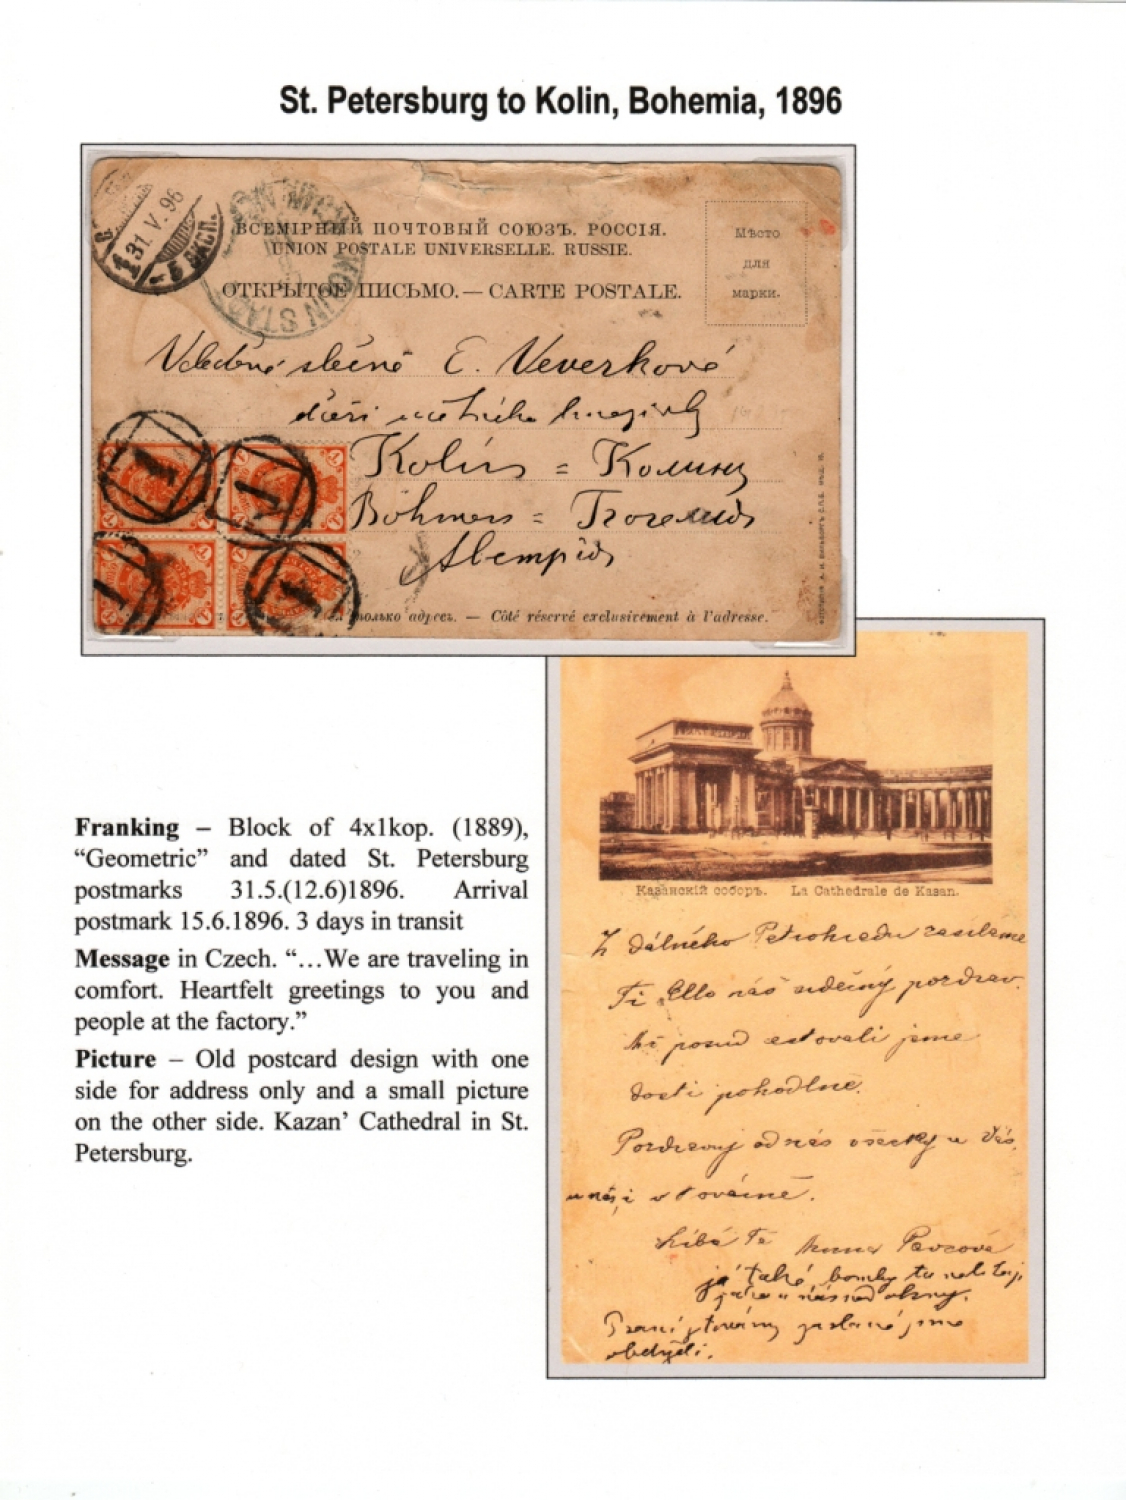 St. Petersburg to Kolin, Bohemia, 1896
31.V.96
5 ЭКСП.
KOLIN STADT
ВСЕМІРНЫЙ ПОЧТОВЫЙ СОЮЗЪ. РОССІЯ.
UNION POSTALE UNIVERSELLE. RUSSIE.
ОТКРЫТОЕ ПИСЬМО. — CARTE POSTALE.
Мѣсто
для
марки.
slečně E. Veverkové
Kolín =
Böhmen =
1
1
1
только адресъ. — Côté réservé exclusivement à l'adresse.
Казанскій соборъ. La Cathédrale de Kasan.
Z dálného Petrohradu zasíláme
Ti Ello náš srdečný pozdrav.
posud cestovali jsme
dosti pohodlně.
Pozdravuj od nás všecky u Vás,
u nás i v továrně.
Líbá Tě Anna
já také bomby tu
jako u nás nad okny.
Psaní z továrny zaslané jsme
obdrželi.
Franking – Block of 4x1kop. (1889),
“Geometric” and dated St. Petersburg
postmarks 31.5.(12.6)1896. Arrival
postmark 15.6.1896. 3 days in transit
Message in Czech. “…We are traveling in
comfort. Heartfelt greetings to you and
people at the factory.”
Picture – Old postcard design with one
side for address only and a small picture
on the other side. Kazan’ Cathedral in St.
Petersburg.